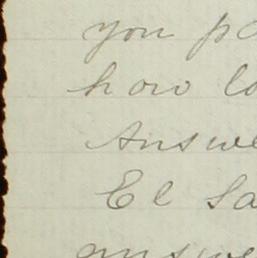 you po
how lo
Answe
El Sa
answe